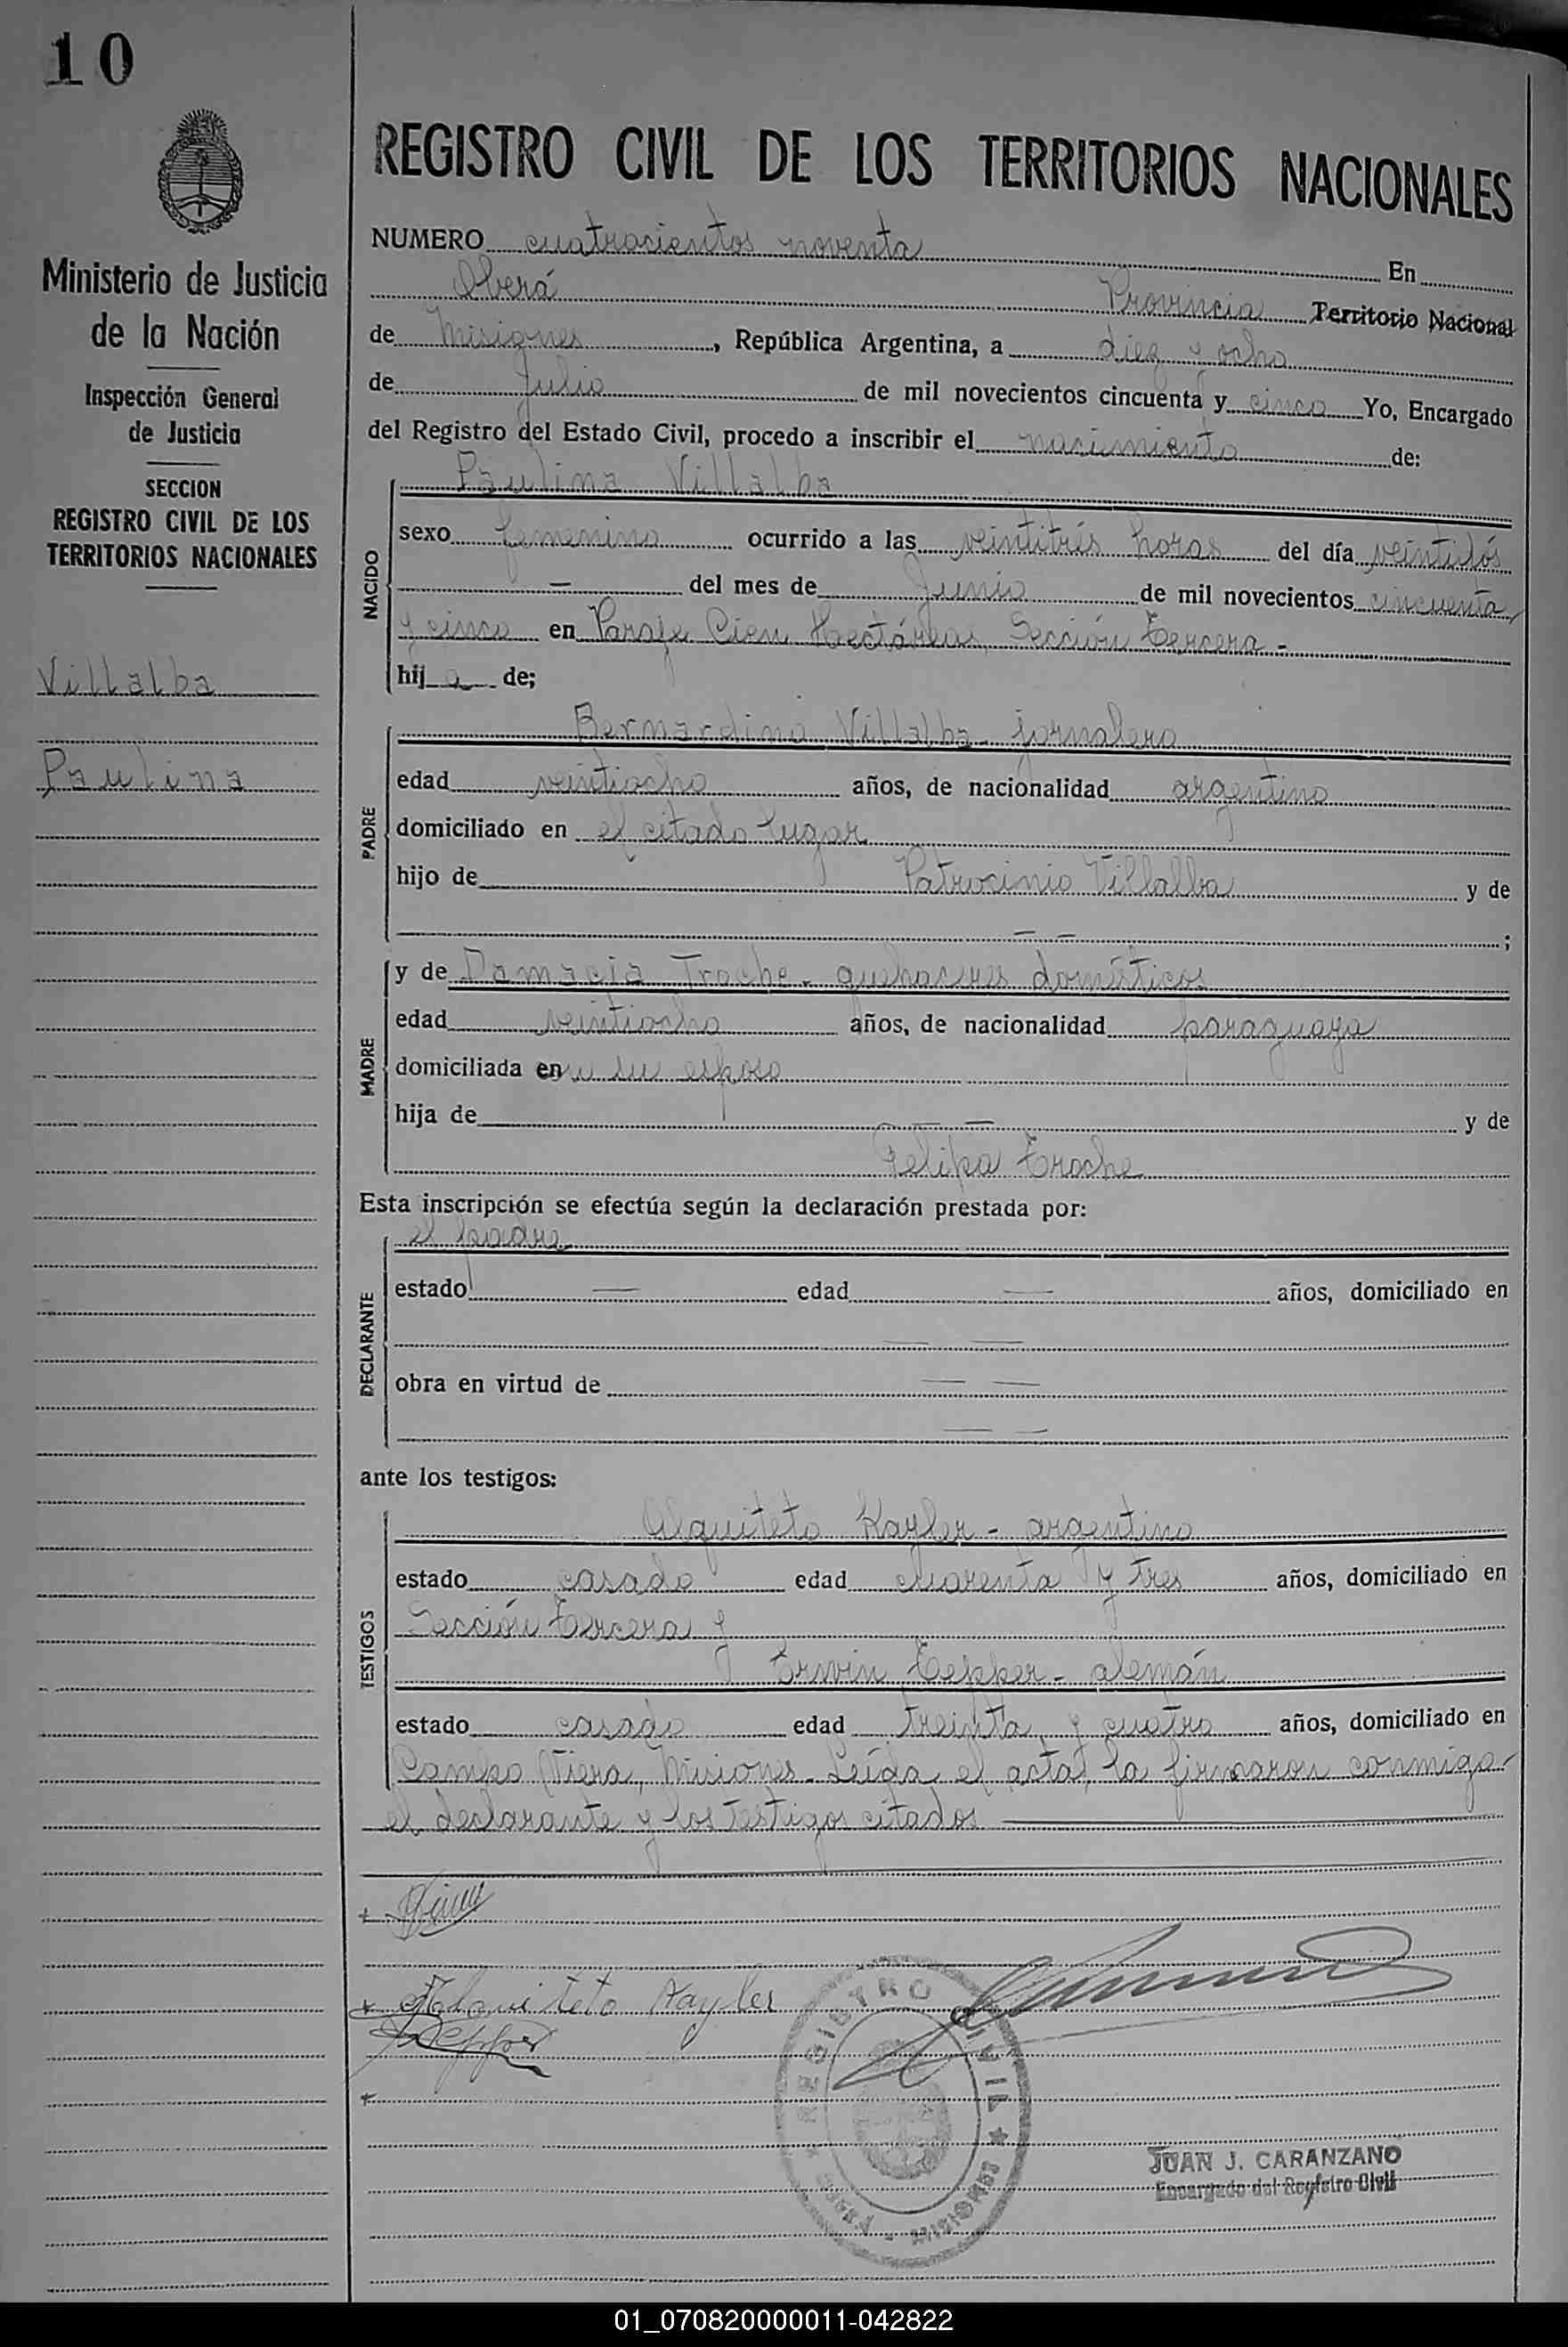 10
Ministerio de Justicia
de la Nación
Inspección General
de Justicia
SECCION
REGISTRO CIVIL DE LOS
TERRITORIOS NACIONALES
Villalba
Paulina
REGISTRO CIVIL DE LOS TERRITORIOS NACIONALES
NUMERO cuatrocientos noventa En
Oberá Provincia Territorio Nacional
de Misiones, República Argentina, a diez y ocho
de Julio de mil novecientos cincuenta y cinco Yo, Encargado
del Registro del Estado Civil, procedo a inscribir el nacimiento de:
NACIDO
Paulina Villalba
sexo femenino ocurrido a las veintitrés horas del día veintidós
— del mes de Junio de mil novecientos cincuenta
y cinco en Paraje Cien Hectáreas, Sección Tercera -
hija de;
PADRE
Bernardino Villalba - jornalero
edad veintiocho años, de nacionalidad argentino
domiciliado en el citado lugar
hijo de Patrocinio Villalba y de
— — ;
MADRE
y de Damacia Troche - quehaceres domésticos
edad veintiocho años, de nacionalidad paraguaya
domiciliada en su esposo
hija de — y de
Felipa Troche
Esta inscripción se efectúa según la declaración prestada por:
DECLARANTE
el padre
estado — edad — años, domiciliado en
— —
obra en virtud de — —
— —
ante los testigos:
TESTIGOS
Kayler - argentino
estado casado edad cuarenta y tres años, domiciliado en
Sección Tercera y
Erwin Tepper - alemán
estado casado edad treinta y cuatro años, domiciliado en
Campo Viera, Misiones - Leída el acta, la firmaron conmigo
el declarante y los testigos citados
Kayler
Tepper
REGISTRO CIVIL
MISIONES
JUAN J. CARANZANO
Encargado del Registro Civil
01_070820000011-042822